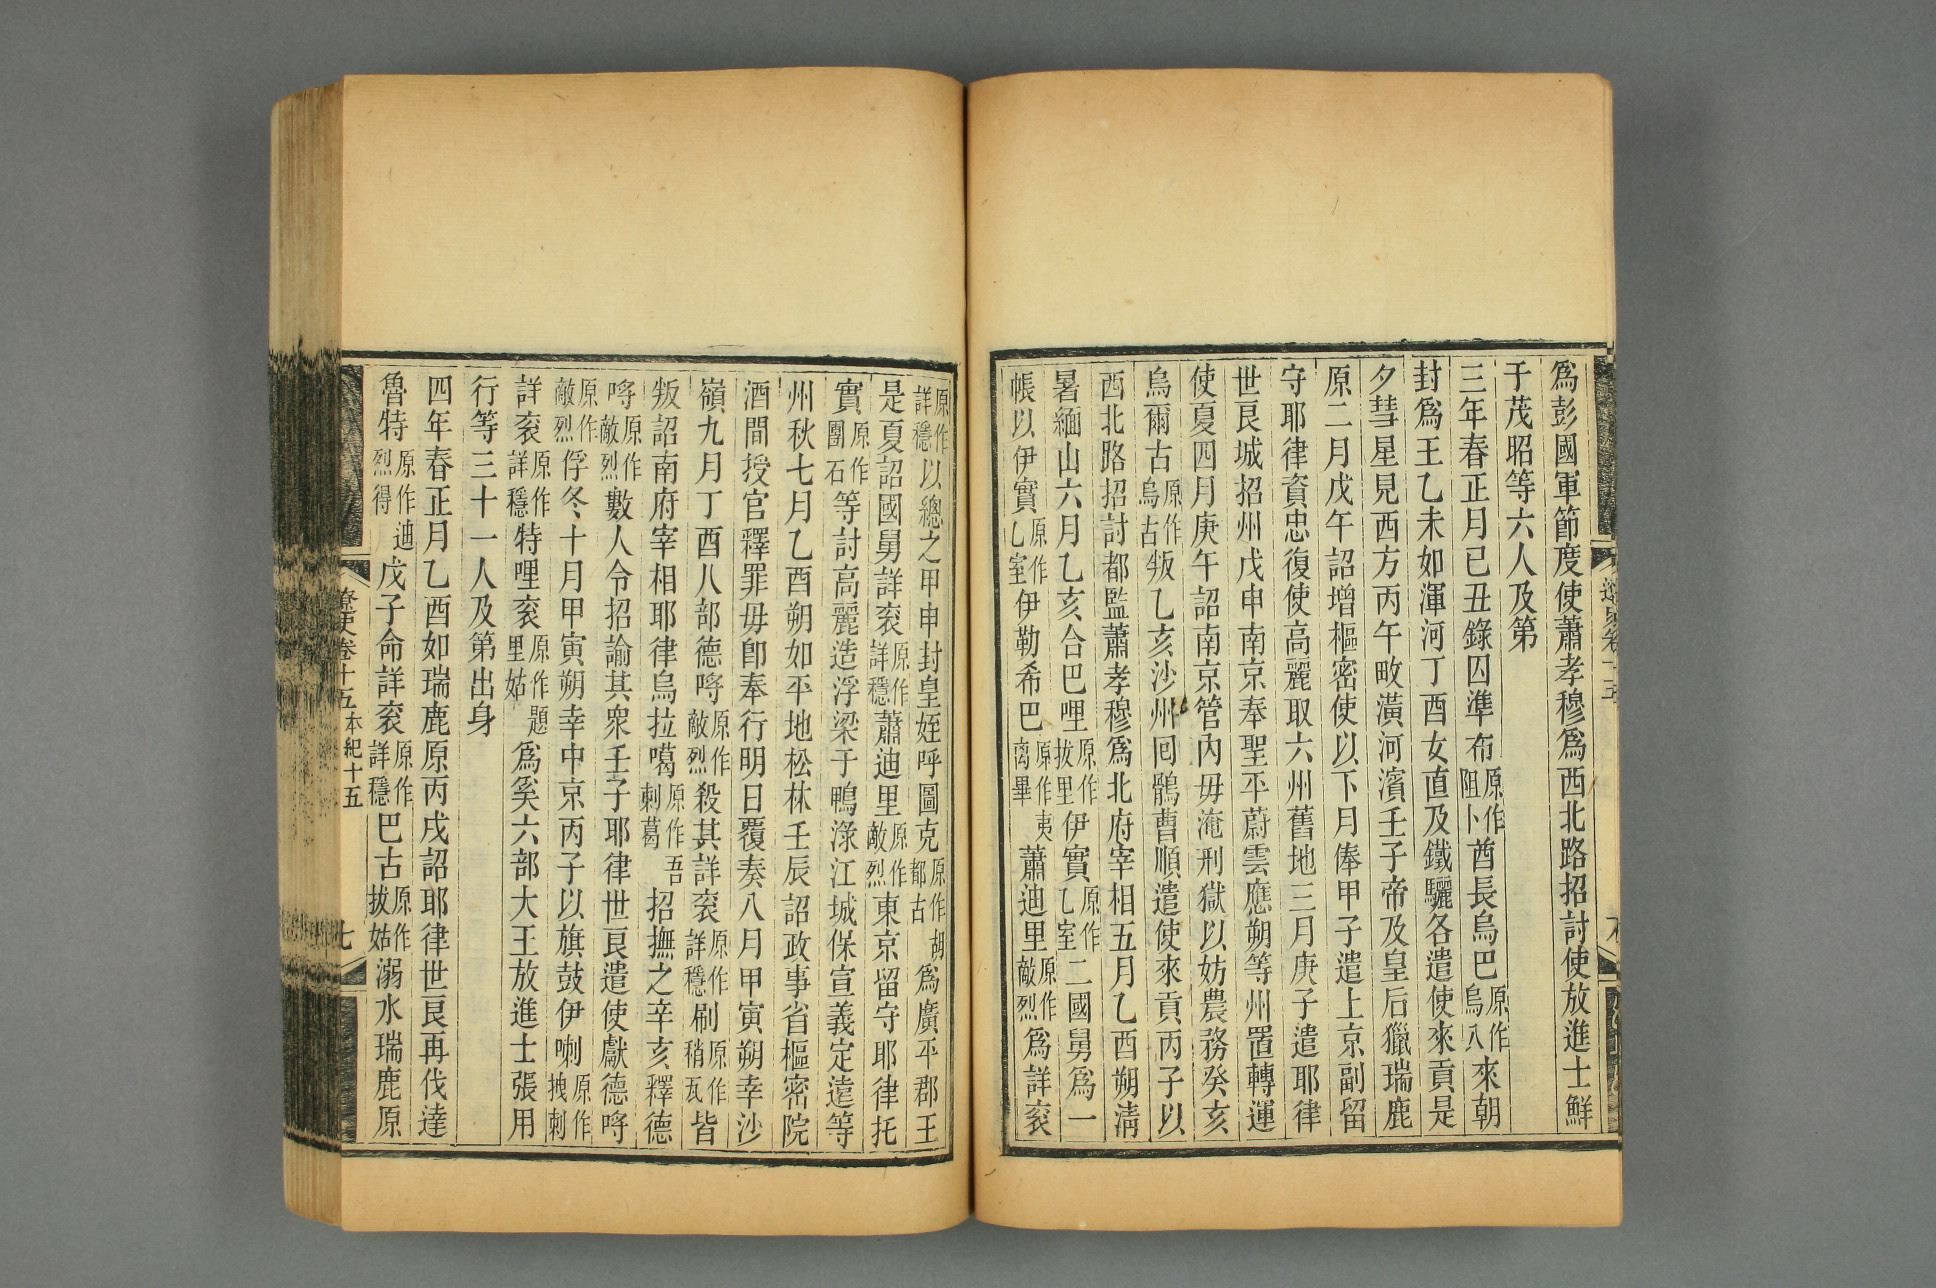 爲彭國軍節度使蕭孝穆爲西北路招討使放進士鮮
于茂昭等六人及第
三年春正月己丑錄囚準布原作阻卜酋長烏巴原作烏八來朝
封爲王乙未如渾河丁酉女直及鐵驪各遣使來貢是
夕彗星見西方丙午畋潢河濱壬子帝及皇后獵瑞鹿
原二月戊午詔增樞密使以下月俸甲子遣上京副留
守耶律資忠復使高麗取六州舊地三月庚子遣耶律
世良城招州戊申南京奉聖平蔚雲應朔等州置轉運
使夏四月庚午詔南京管內毋淹刑獄以妨農務癸亥
烏爾古原作烏古叛乙亥沙州囘鶻曹順遣使來貢丙子以
西北路招討都監蕭孝穆爲北府宰相五月乙酉朔淸
暑緬山六月乙亥合巴哩原作拔里伊實原作乙室二國舅爲一
帳以伊實原作乙室伊勒希巴原作夷离畢蕭迪里原作敵烈爲詳袞
原作詳穩以總之甲申封皇姪呼圖克原作胡都古爲廣平郡王
是夏詔國舅詳袞原作詳穩蕭迪里原作敵烈東京留守耶律托
實原作團石等討高麗造浮梁于鴨淥江城保宣義定遠等
州秋七月乙酉朔如平地松林壬辰詔政事省樞密院
酒間授官釋罪毋卽奉行明日覆奏八月甲寅朔幸沙
嶺九月丁酉八部德哷原作敵烈殺其詳袞原作詳穩刷原作稍瓦皆
叛詔南府宰相耶律烏拉噶原作吾剌葛招撫之辛亥釋德
哷原作敵烈數人令招諭其衆壬子耶律世良遣使獻德哷
原作敵烈俘冬十月甲寅朔幸中京丙子以旗鼓伊喇原作拽剌
詳袞原作詳穩特哩袞原作題里姑爲奚六部大王放進士張用
行等三十一人及第出身
四年春正月乙酉如瑞鹿原丙戌詔耶律世良再伐達
魯特原作迪烈得戊子命詳袞原作詳穩巴古原作拔姑溺水瑞鹿原
遼史卷十五本紀十五
七